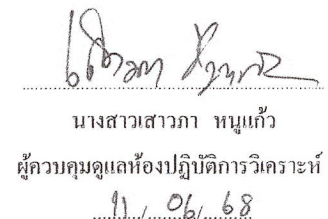 นางสาวเสาวภา หนูแก้ว
ผู้ควบคุมดูแลห้องปฏิบัติการวิเคราะห์
11 / 06 / 68